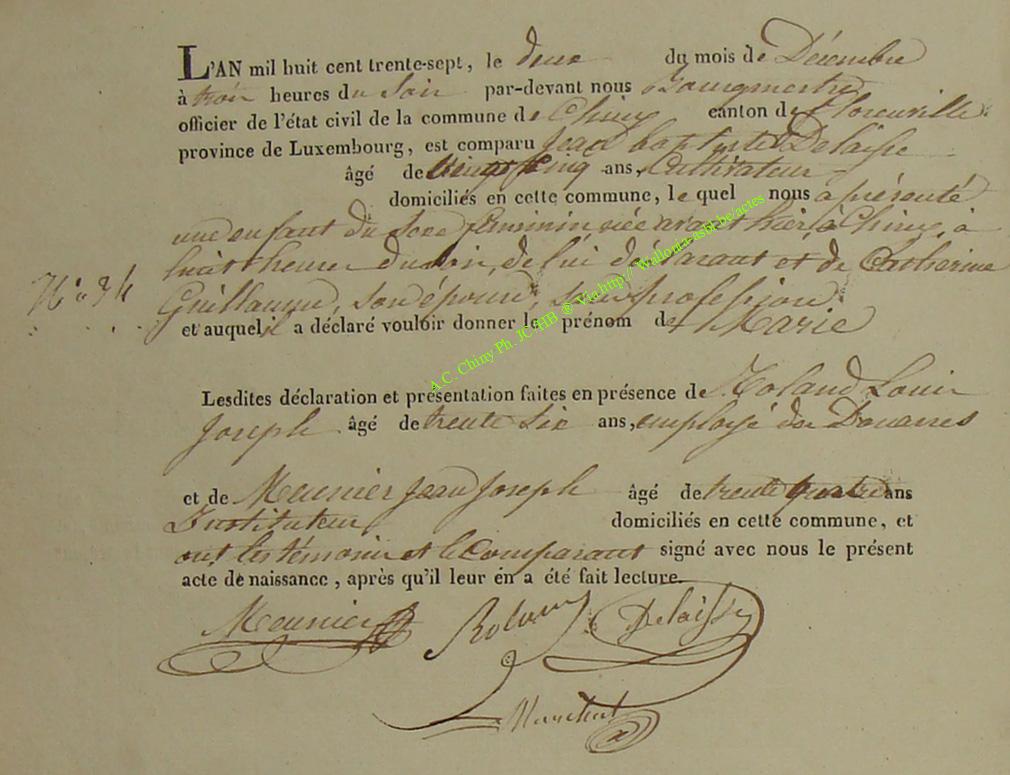 L'AN mil huit cent trente-sept, le deux du mois de Décembre
à trois heures du Soir par-devant nous Bourgmestre
officier de l'état civil de la commune de Chiny canton de Florenville
province de Luxembourg, est comparu Jean baptiste Delaisse
âgé de vingt cinq ans, Cultivateur
domiciliés en cette commune, le quel nous a présenté
une enfant du Sexe féminin née avant hier, à Chiny, à
huit heures du soir, de lui déclarant et de Catherine
N° 34
Guillaume, son épouse, sans profession
et auquel il a déclaré vouloir donner le prénom de Marie
Lesdites déclaration et présentation faites en présence de Roland Louis
Joseph âgé de trente six ans, employé des Douanes
et de Meunier Jean Joseph âgé de trente quatre ans
Instituteur domiciliés en cette commune, et
ont les témoins et le Comparant signé avec nous le présent
acte de naissance, après qu'il leur en a été fait lecture.
Meunier Roland Delaisse
Marchal
A.C. Chiny Ph. JC-HB @ Via http:// Wallonia-asbl.be/actes